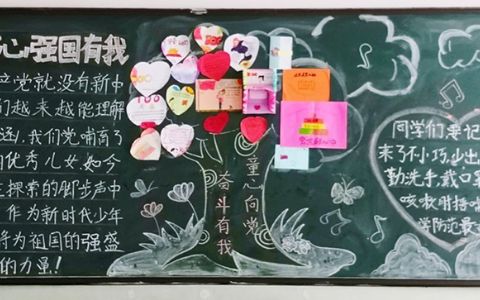 心 强国有我
产党就没有新中
们越来越能理解
我们党哺育了
优秀儿女,如今
探索的脚步声中
作为新时代少年
将为祖国的强盛
的力量!
100
童心向党
奋斗有我
同学们要记
来了不小巧,少出
勤洗手,戴口罩
咳嗽时捂嘴
学防范最